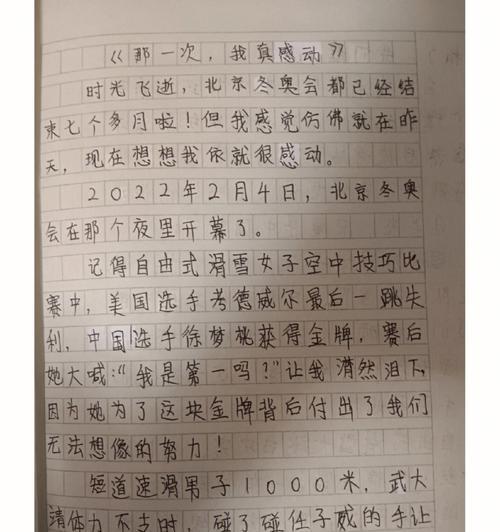 《那一次，我真感动》
时光飞逝，北京冬奥会都已经结
束七个多月啦！但我感觉仿佛就在昨
天，现在想想我依就很感动。
2022年2月4日，北京冬奥
会在那个夜里开幕了。
记得自由式滑雪女子空中技巧比
赛中，美国选手考德威尔最后一跳失
利，中国选手徐梦桃获得金牌，赛后
她大喊：“我是第一吗？”让我潸然泪下，
因为她为了这块金牌背后付出了我们
无法想像的努力！
短道速滑男子1000米，武大
靖体力不支时，碰了碰任子威的手让